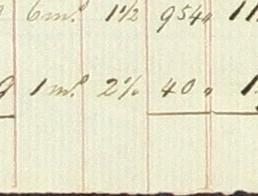 6 m.s 1½ 954 11
9 1 m.s 2½ 40